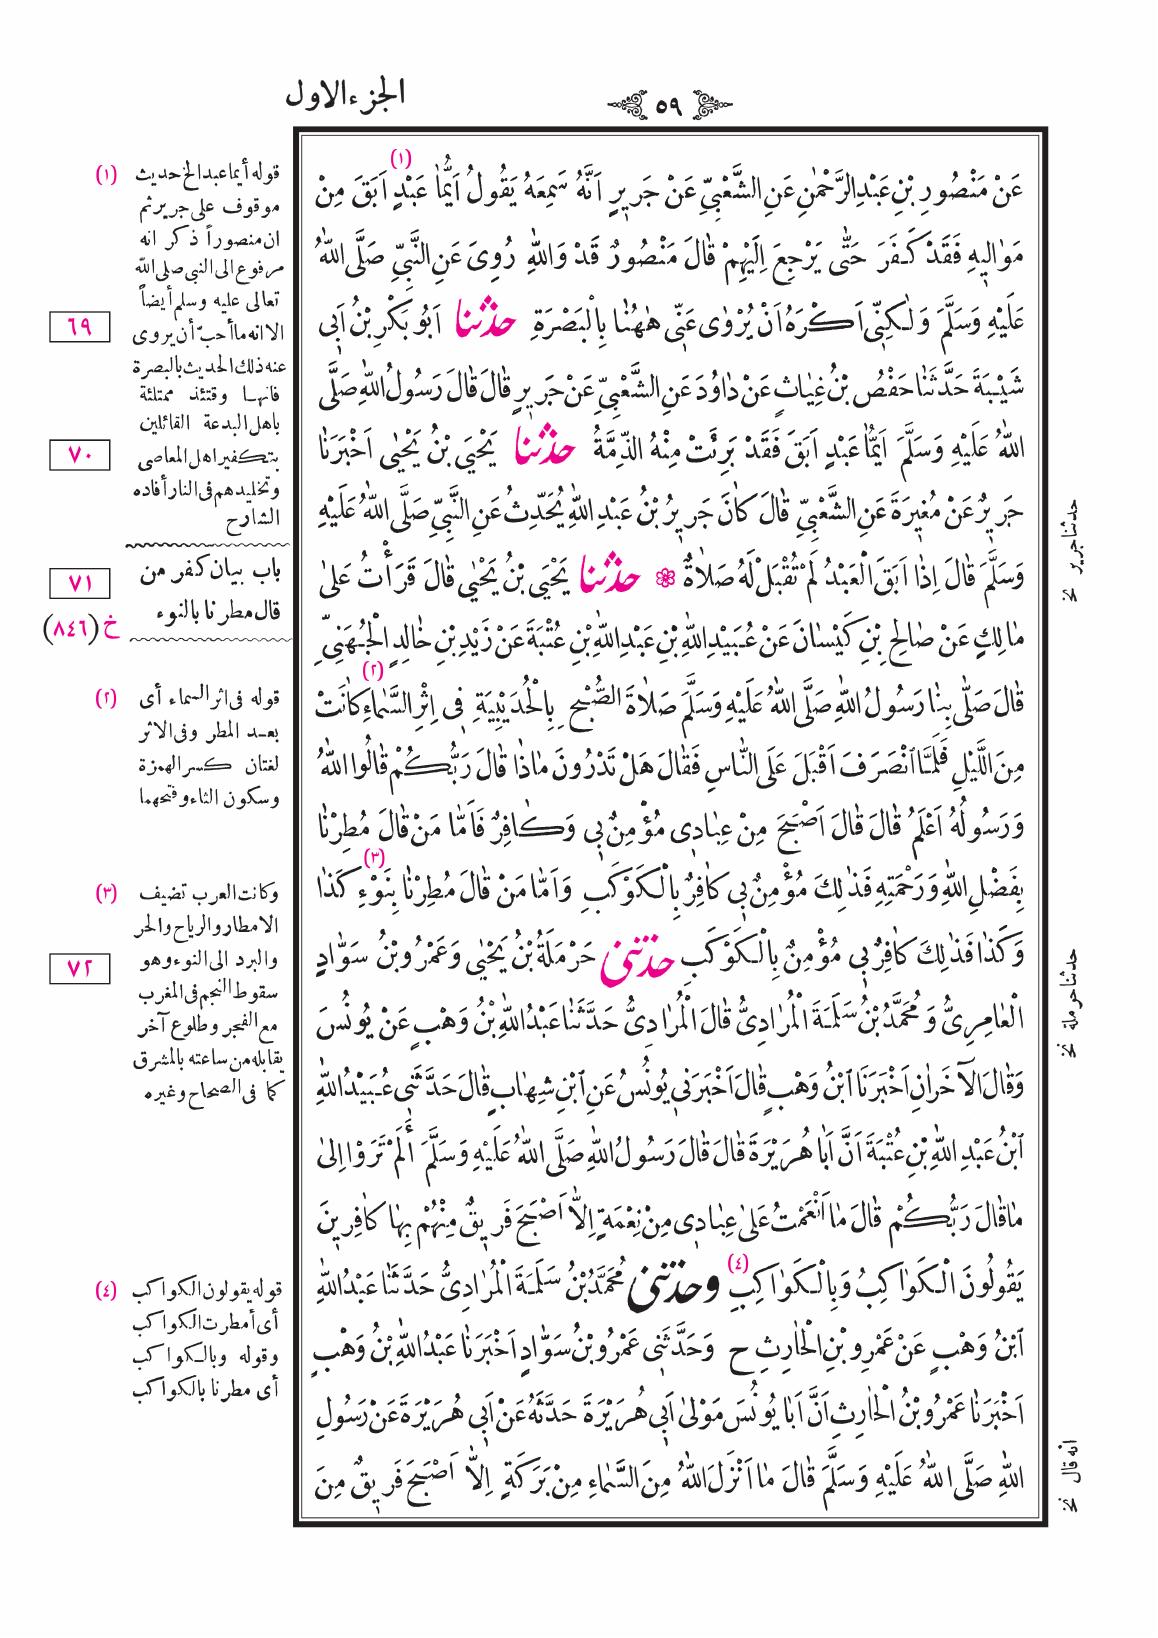 الجزء الاول
٥٩
عَنْ مَنْصُورِ بْنِ عَبْدِ الرَّحْمٰنِ عَنِ الشَّعْبِيِّ عَنْ جَرِيرٍ اَنَّهُ سَمِعَهُ يَقُولُ اَيُّمَا عَبْدٍ (١) اَبَقَ مِنْ
مَوَالِيهِ فَقَدْ كَفَرَ حَتّٰى يَرْجِعَ اِلَيْهِمْ قَالَ مَنْصُورٌ قَدْ وَاللّٰهِ رُوِىَ عَنِ النَّبِيِّ صَلَّى اللّٰهُ
عَلَيْهِ وَسَلَّمَ وَلٰكِنِّى اَكْرَهُ اَنْ يُرْوٰى عَنِّى هٰهُنَا بِالْبَصْرَةِ حدثنا اَبُو بَكْرِ بْنُ اَبِى
شَيْبَةَ حَدَّثَنَا حَفْصُ بْنُ غِيَاثٍ عَنْ دَاوُدَ عَنِ الشَّعْبِيِّ عَنْ جَرِيرٍ قَالَ قَالَ رَسُولُ اللّٰهِ صَلَّى
اللّٰهُ عَلَيْهِ وَسَلَّمَ اَيُّمَا عَبْدٍ اَبَقَ فَقَدْ بَرِئَتْ مِنْهُ الذِّمَّةُ حدثنا يَحْيَى بْنُ يَحْيٰى اَخْبَرَنَا
جَرِيرٌ عَنْ مُغِيرَةَ عَنِ الشَّعْبِيِّ قَالَ كَانَ جَرِيرُ بْنُ عَبْدِ اللّٰهِ يُحَدِّثُ عَنِ النَّبِيِّ صَلَّى اللّٰهُ عَلَيْهِ
وَسَلَّمَ قَالَ اِذَا اَبَقَ الْعَبْدُ لَمْ تُقْبَلْ لَهُ صَلَاةٌ ❁ حدثنا يَحْيَى بْنُ يَحْيٰى قَالَ قَرَأْتُ عَلىٰ
مَالِكٍ عَنْ صَالِحِ بْنِ كَيْسَانَ عَنْ عُبَيْدِ اللّٰهِ بْنِ عَبْدِ اللّٰهِ بْنِ عُتْبَةَ عَنْ زَيْدِ بْنِ خَالِدٍ الْجُهَنِيِّ
قَالَ صَلّٰى بِنَا رَسُولُ اللّٰهِ صَلَّى اللّٰهُ عَلَيْهِ وَسَلَّمَ صَلَاةَ الصُّبْحِ بِالْحُدَيْبِيَةِ فِى اِثْرِ السَّمَاءِ (٢) كَانَتْ
مِنَ اللَّيْلِ فَلَمَّا انْصَرَفَ اَقْبَلَ عَلَى النَّاسِ فَقَالَ هَلْ تَدْرُونَ مَاذَا قَالَ رَبُّكُمْ قَالُوا اللّٰهُ
وَرَسُولُهُ اَعْلَمُ قَالَ قَالَ اَصْبَحَ مِنْ عِبَادِى مُؤْمِنٌ بِى وَكَافِرٌ فَاَمَّا مَنْ قَالَ مُطِرْنَا
بِفَضْلِ اللّٰهِ وَرَحْمَتِهِ فَذٰلِكَ مُؤْمِنٌ بِى كَافِرٌ بِالْكَوْكَبِ وَاَمَّا مَنْ قَالَ مُطِرْنَا بِنَوْءِ (٣) كَذَا
وَكَذَا فَذٰلِكَ كَافِرٌ بِى مُؤْمِنٌ بِالْكَوْكَبِ حدثنى حَرْمَلَةُ بْنُ يَحْيٰى وَعَمْرُو بْنُ سَوَّادٍ
الْعَامِرِىُّ وَمُحَمَّدُ بْنُ سَلَمَةَ الْمُرَادِىُّ قَالَ الْمُرَادِىُّ حَدَّثَنَا عَبْدُ اللّٰهِ بْنُ وَهْبٍ عَنْ يُونُسَ
وَقَالَ الْآخَرَانِ اَخْبَرَنَا ابْنُ وَهْبٍ قَالَ اَخْبَرَنِى يُونُسُ عَنِ ابْنِ شِهَابٍ قَالَ حَدَّثَنِى عُبَيْدُ اللّٰهِ
ابْنُ عَبْدِ اللّٰهِ بْنِ عُتْبَةَ اَنَّ اَبَا هُرَيْرَةَ قَالَ قَالَ رَسُولُ اللّٰهِ صَلَّى اللّٰهُ عَلَيْهِ وَسَلَّمَ أَلَمْ تَرَوْا اِلىٰ
مَا قَالَ رَبُّكُمْ قَالَ مَا اَنْعَمْتُ عَلىٰ عِبَادِى مِنْ نِعْمَةٍ اِلَّا اَصْبَحَ فَرِيقٌ مِنْهُمْ بِهَا كَافِرِينَ
يَقُولُونَ الْكَوَاكِبُ وَبِالْكَوَاكِبِ (٤) وحدثنى مُحَمَّدُ بْنُ سَلَمَةَ الْمُرَادِىُّ حَدَّثَنَا عَبْدُ اللّٰهِ
ابْنُ وَهْبٍ عَنْ عَمْرِو بْنِ الْحَارِثِ ح وَحَدَّثَنِى عَمْرُو بْنُ سَوَّادٍ اَخْبَرَنَا عَبْدُ اللّٰهِ بْنُ وَهْبٍ
اَخْبَرَنَا عَمْرُو بْنُ الْحَارِثِ اَنَّ اَبَا يُونُسَ مَوْلىٰ اَبِى هُرَيْرَةَ حَدَّثَهُ عَنْ اَبِى هُرَيْرَةَ عَنْ رَسُولِ
اللّٰهِ صَلَّى اللّٰهُ عَلَيْهِ وَسَلَّمَ قَالَ مَا اَنْزَلَ اللّٰهُ مِنَ السَّمَاءِ مِنْ بَرَكَةٍ اِلَّا اَصْبَحَ فَرِيقٌ مِنَ
(١) قوله أيما عبد الخ حديث
موقوف على جرير ثم
ان منصوراً ذكر انه
مرفوع الى النبى صلى الله
تعالى عليه وسلم أيضاً
الا انه ما أحبّ أن يروى
عنه ذلك الحديث بالبصرة
فانها وقتئذ ممتلئة
باهل البدعة القائلين
بتكفير اهل المعاصى
وتخليدهم فى النار أفاده
الشارح
٦٩
٧٠
باب بيان كفر من
قال مطرنا بالنوء
٧١
خ (٨٤٦)
(٢) قوله فى اثر السماء أى
بعد المطر وفى الاثر
لغتان كسر الهمزة
وسكون الثاء وفتحهما
(٣) وكانت العرب تضيف
الامطار والرياح والحر
والبرد الى النوء وهو
سقوط النجم فى المغرب
مع الفجر وطلوع آخر
يقابله من ساعته بالمشرق
كما فى الصحاح وغيره
٧٢
(٤) قوله يقولون الكواكب
أى أمطرت الكواكب
وقوله وبالكواكب
أى مطرنا بالكواكب
حدثنا جرير نخ
حدثنا حرملة نخ
انه قال نخ